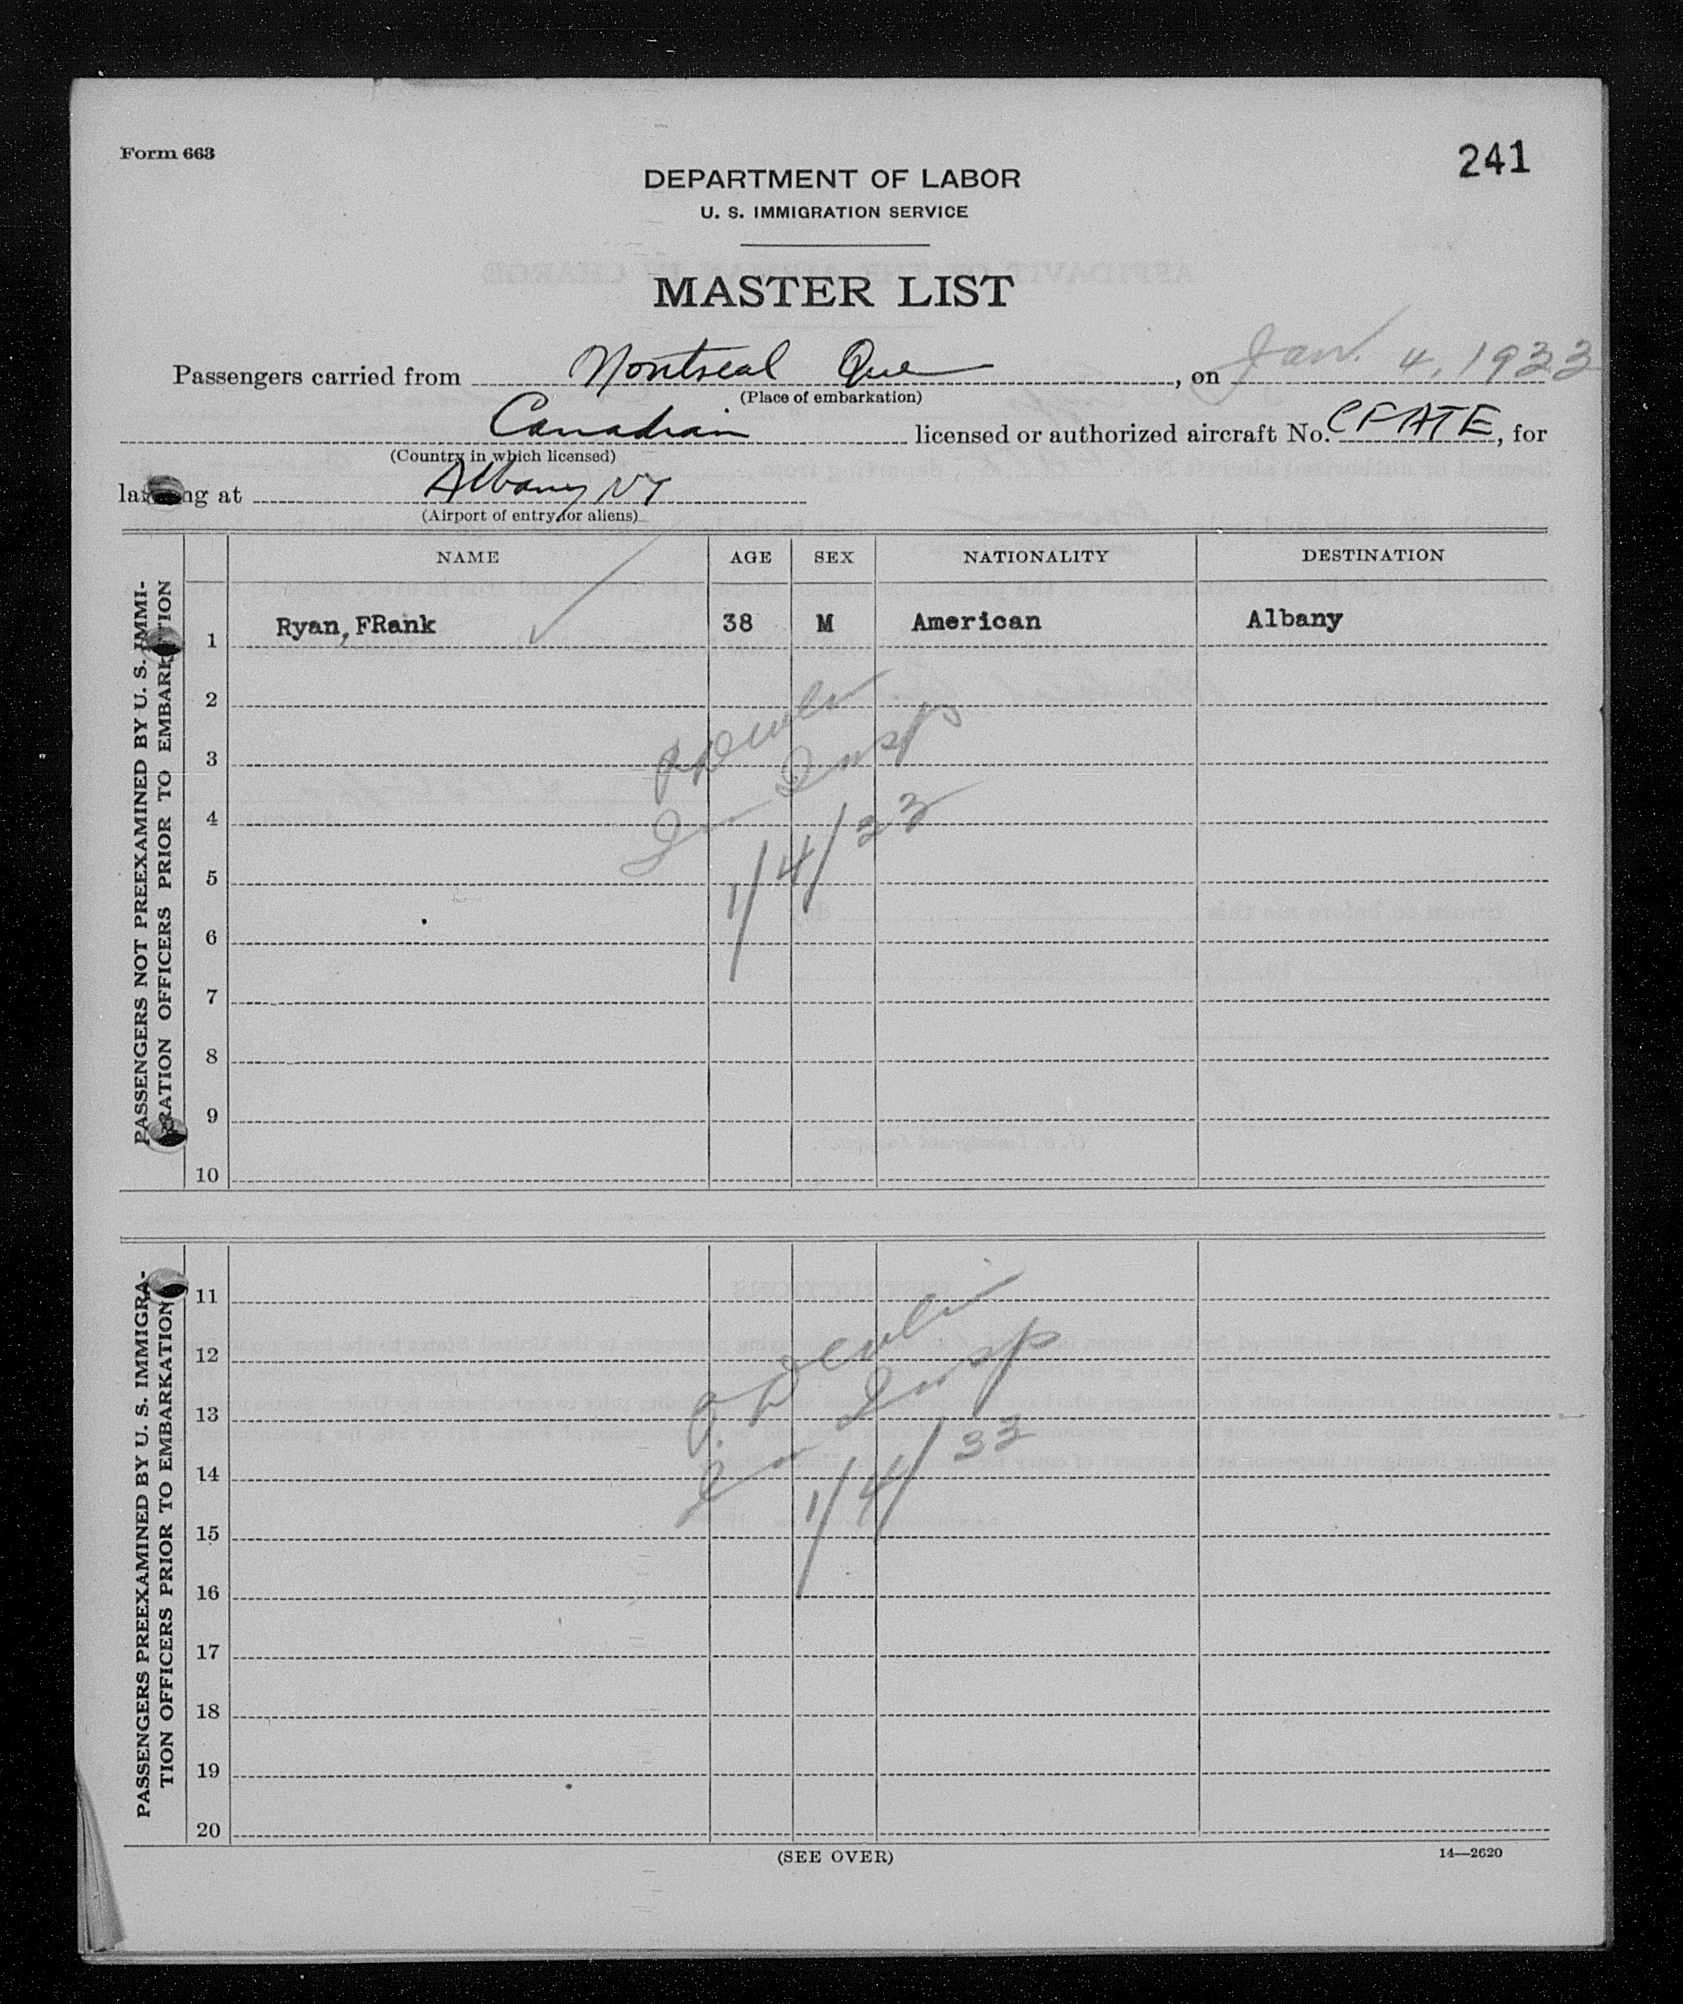 Form 663
241
DEPARTMENT OF LABOR
U. S. IMMIGRATION SERVICE
MASTER LIST
Passengers carried from Montreal Que, on Jan. 4, 1933
(Place of embarkation)
Canadian licensed or authorized aircraft No. CFATE, for
(Country in which licensed)
landing at Albany NY
(Airport of entry for aliens)
NAME AGE SEX NATIONALITY DESTINATION
PASSENGERS NOT PREEXAMINED BY U. S. IMMI-
GRATION OFFICERS PRIOR TO EMBARKATION
1 Ryan, FRank 38 M American Albany
2
3
4
5
6
7
8
9
10
Insp
1/4/33
PASSENGERS PREEXAMINED BY U. S. IMMIGRA-
TION OFFICERS PRIOR TO EMBARKATION
11
12
13
14
15
16
17
18
19
20
Insp
1/4/33
(SEE OVER)
14—2620